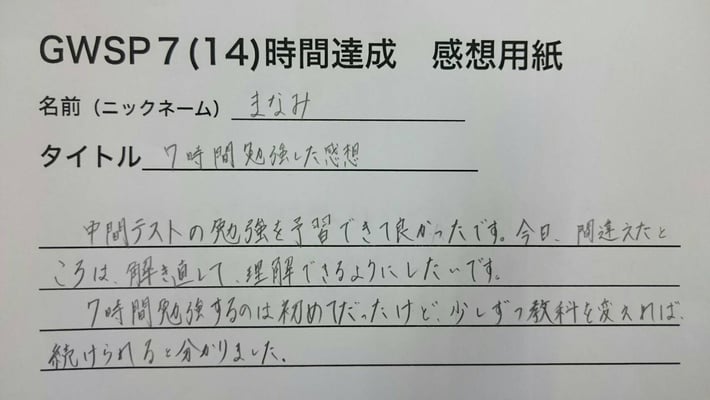 GWSP7(14)時間達成　感想用紙
名前（ニックネーム） まなみ
タイトル 7時間勉強した感想
中間テストの勉強を予習できて良かったです。今日、間違えたと
ころは、解き直して、理解できるようにしたいです。
7時間勉強するのは初めてだったけど、少しずつ教科を変えれば、
続けられると分かりました。